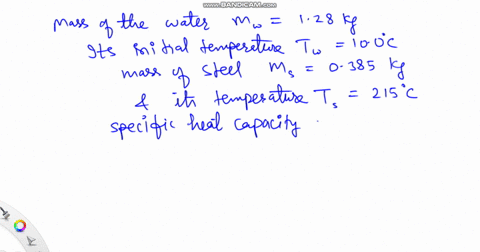 WWW.BANDICAM.COM
Mass of the water m_w = 1.28 kg
Its initial temperature T_w = 10.0°C
mass of steel m_s = 0.385 kg
& its temperature T_s = 215°C
specific heat capacity